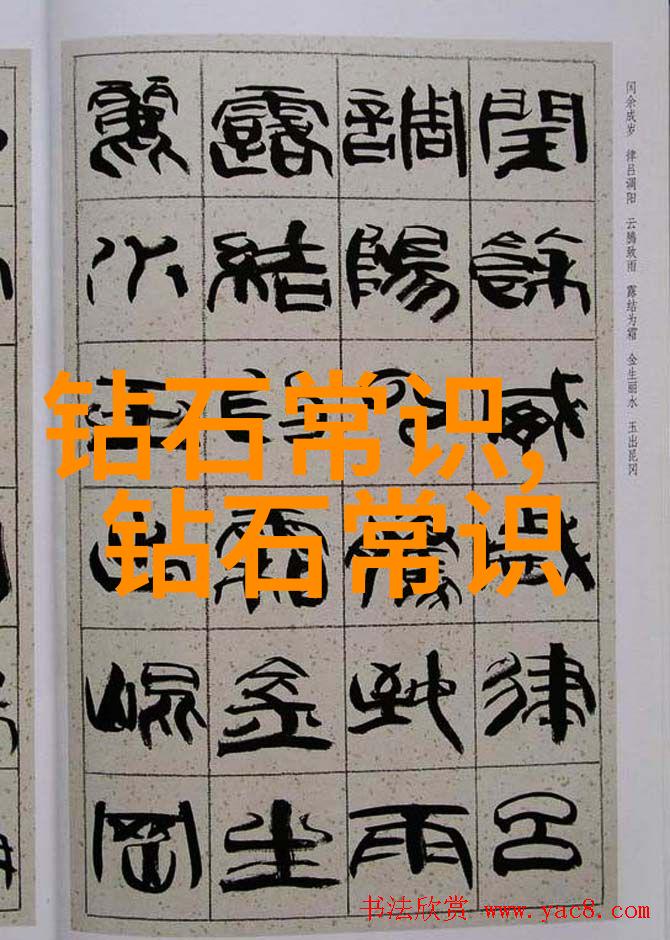 闰余成岁 律吕调阳 云腾致雨 露结为霜 金生丽水 玉出昆冈
閏餘成歲律呂
調陽雲騰致雨
露結為霜金生
麗水玉出崐岡
钻石常识,
钻石常识
书法欣赏 www.yac8.com